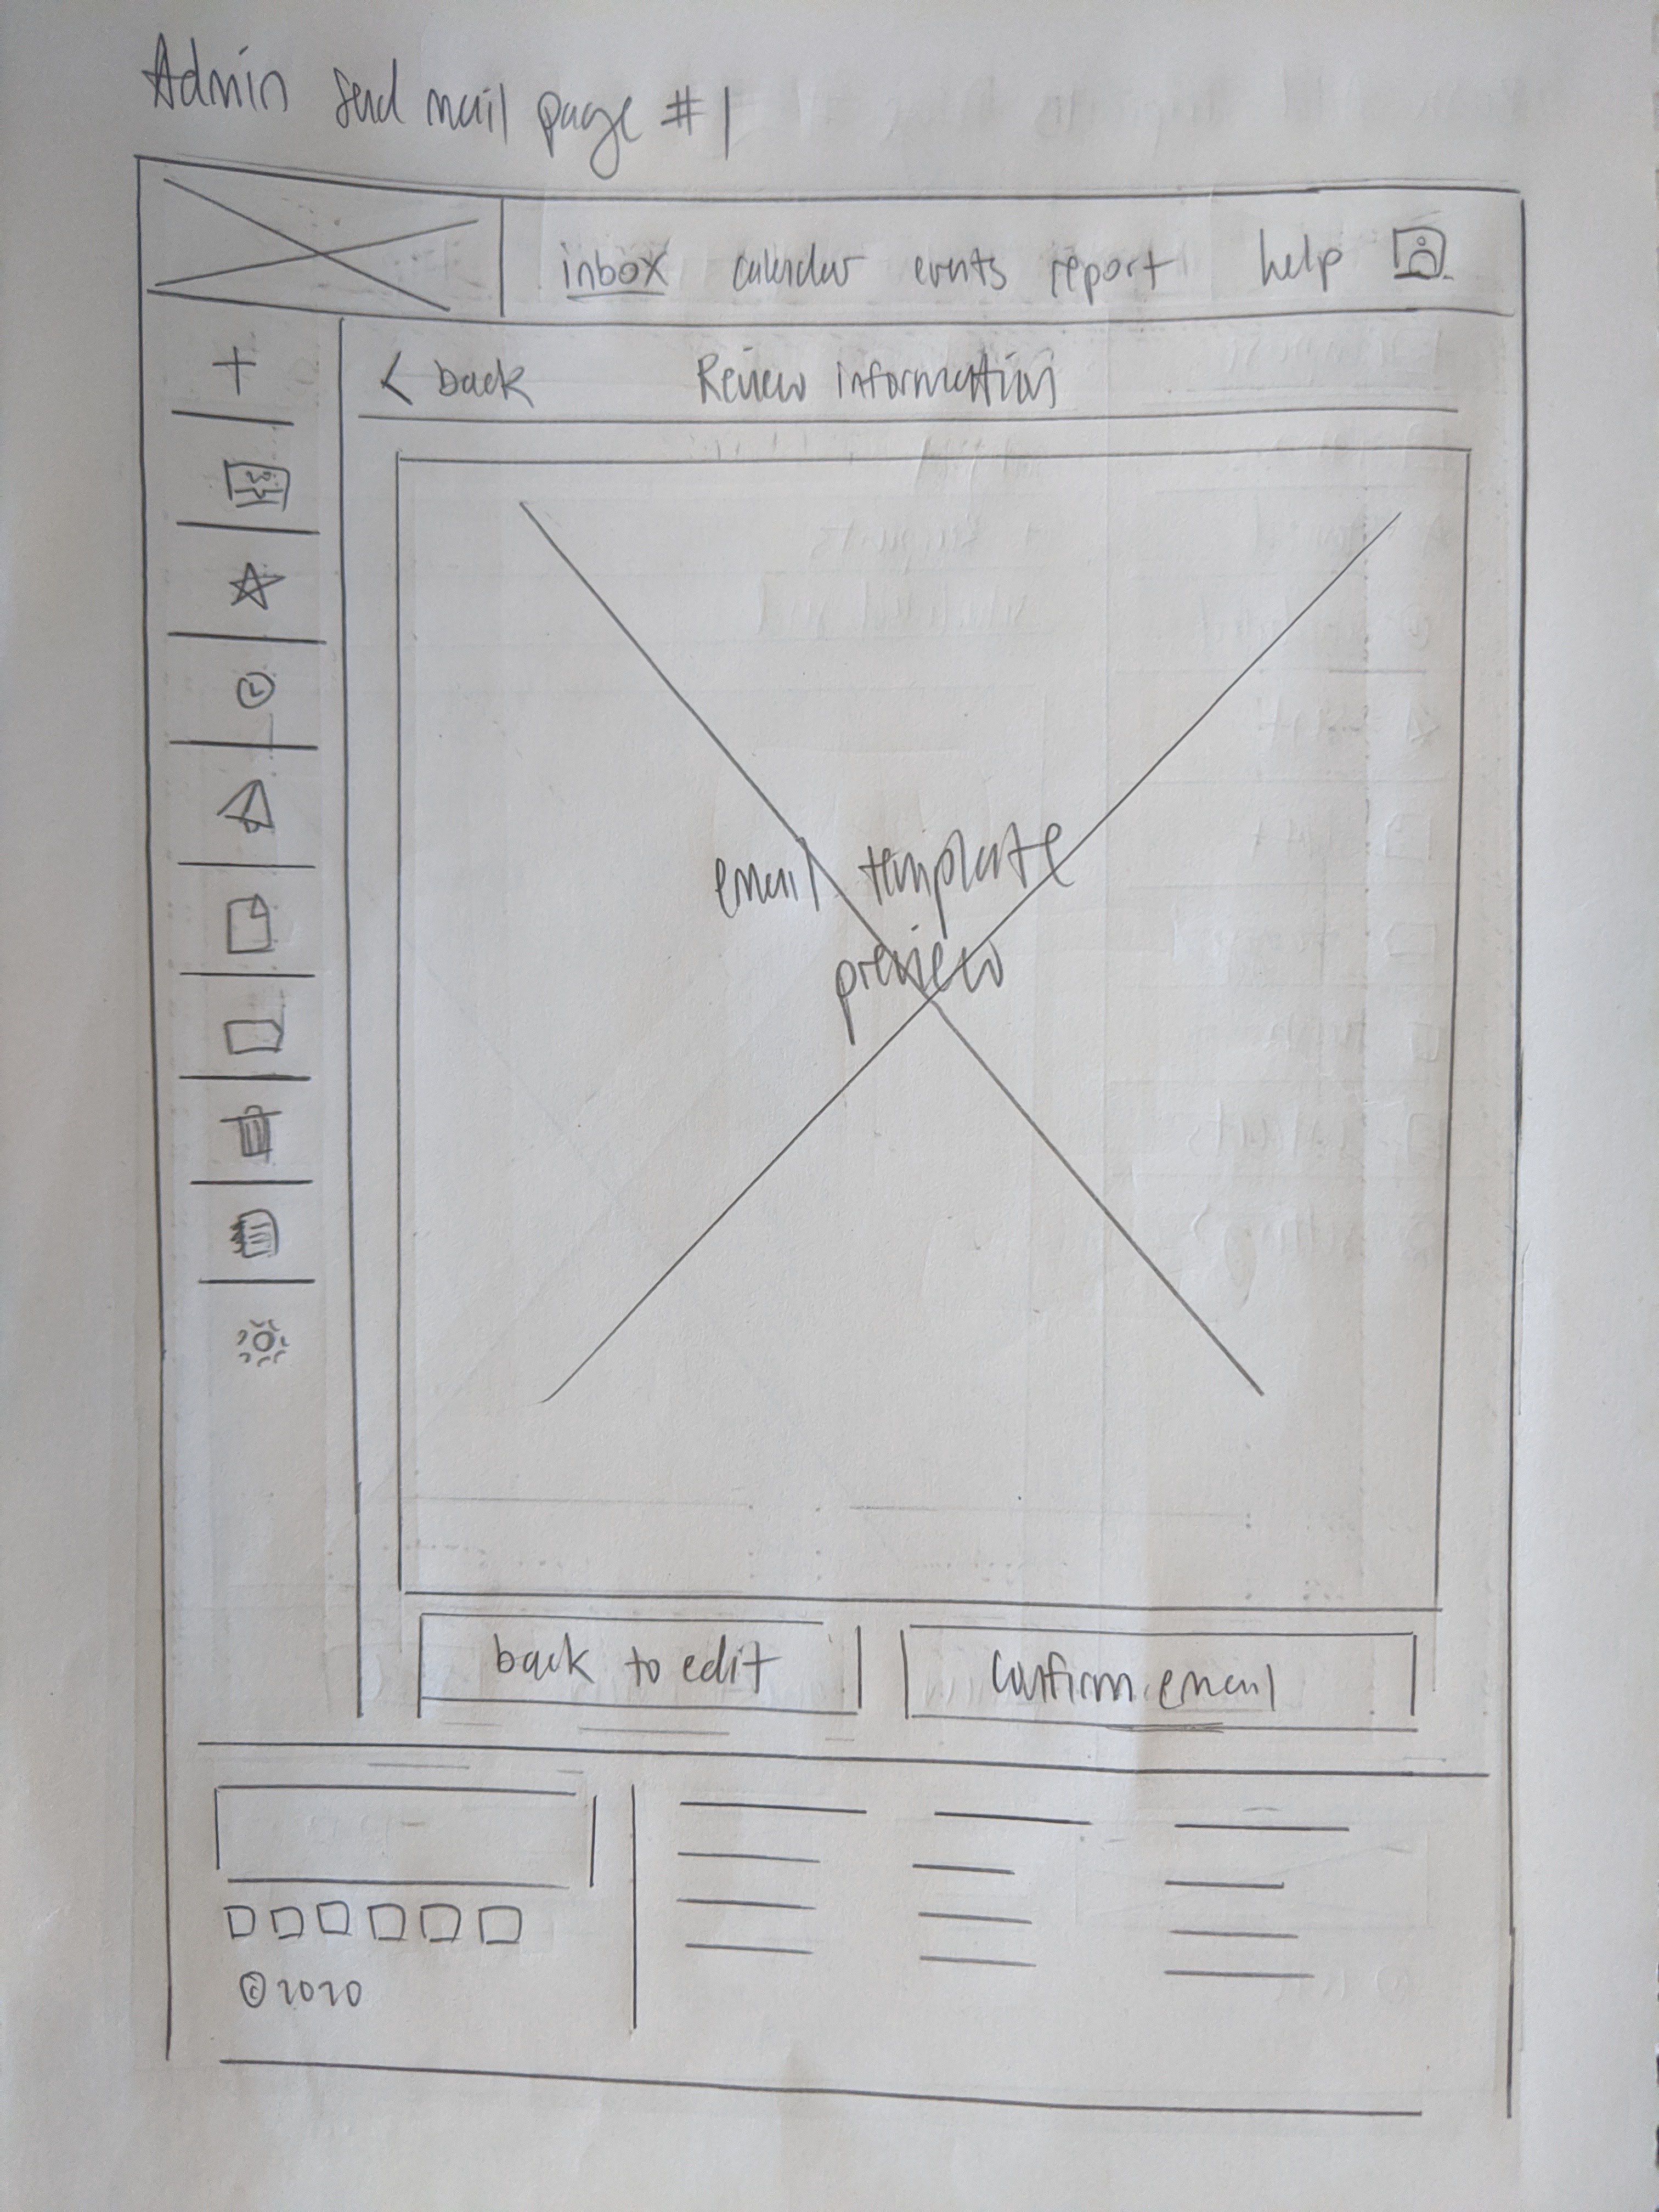 Admin send mail page #1
inbox calendar events report help
+
< back Review information
email template
preview
back to edit confirm email
©2020